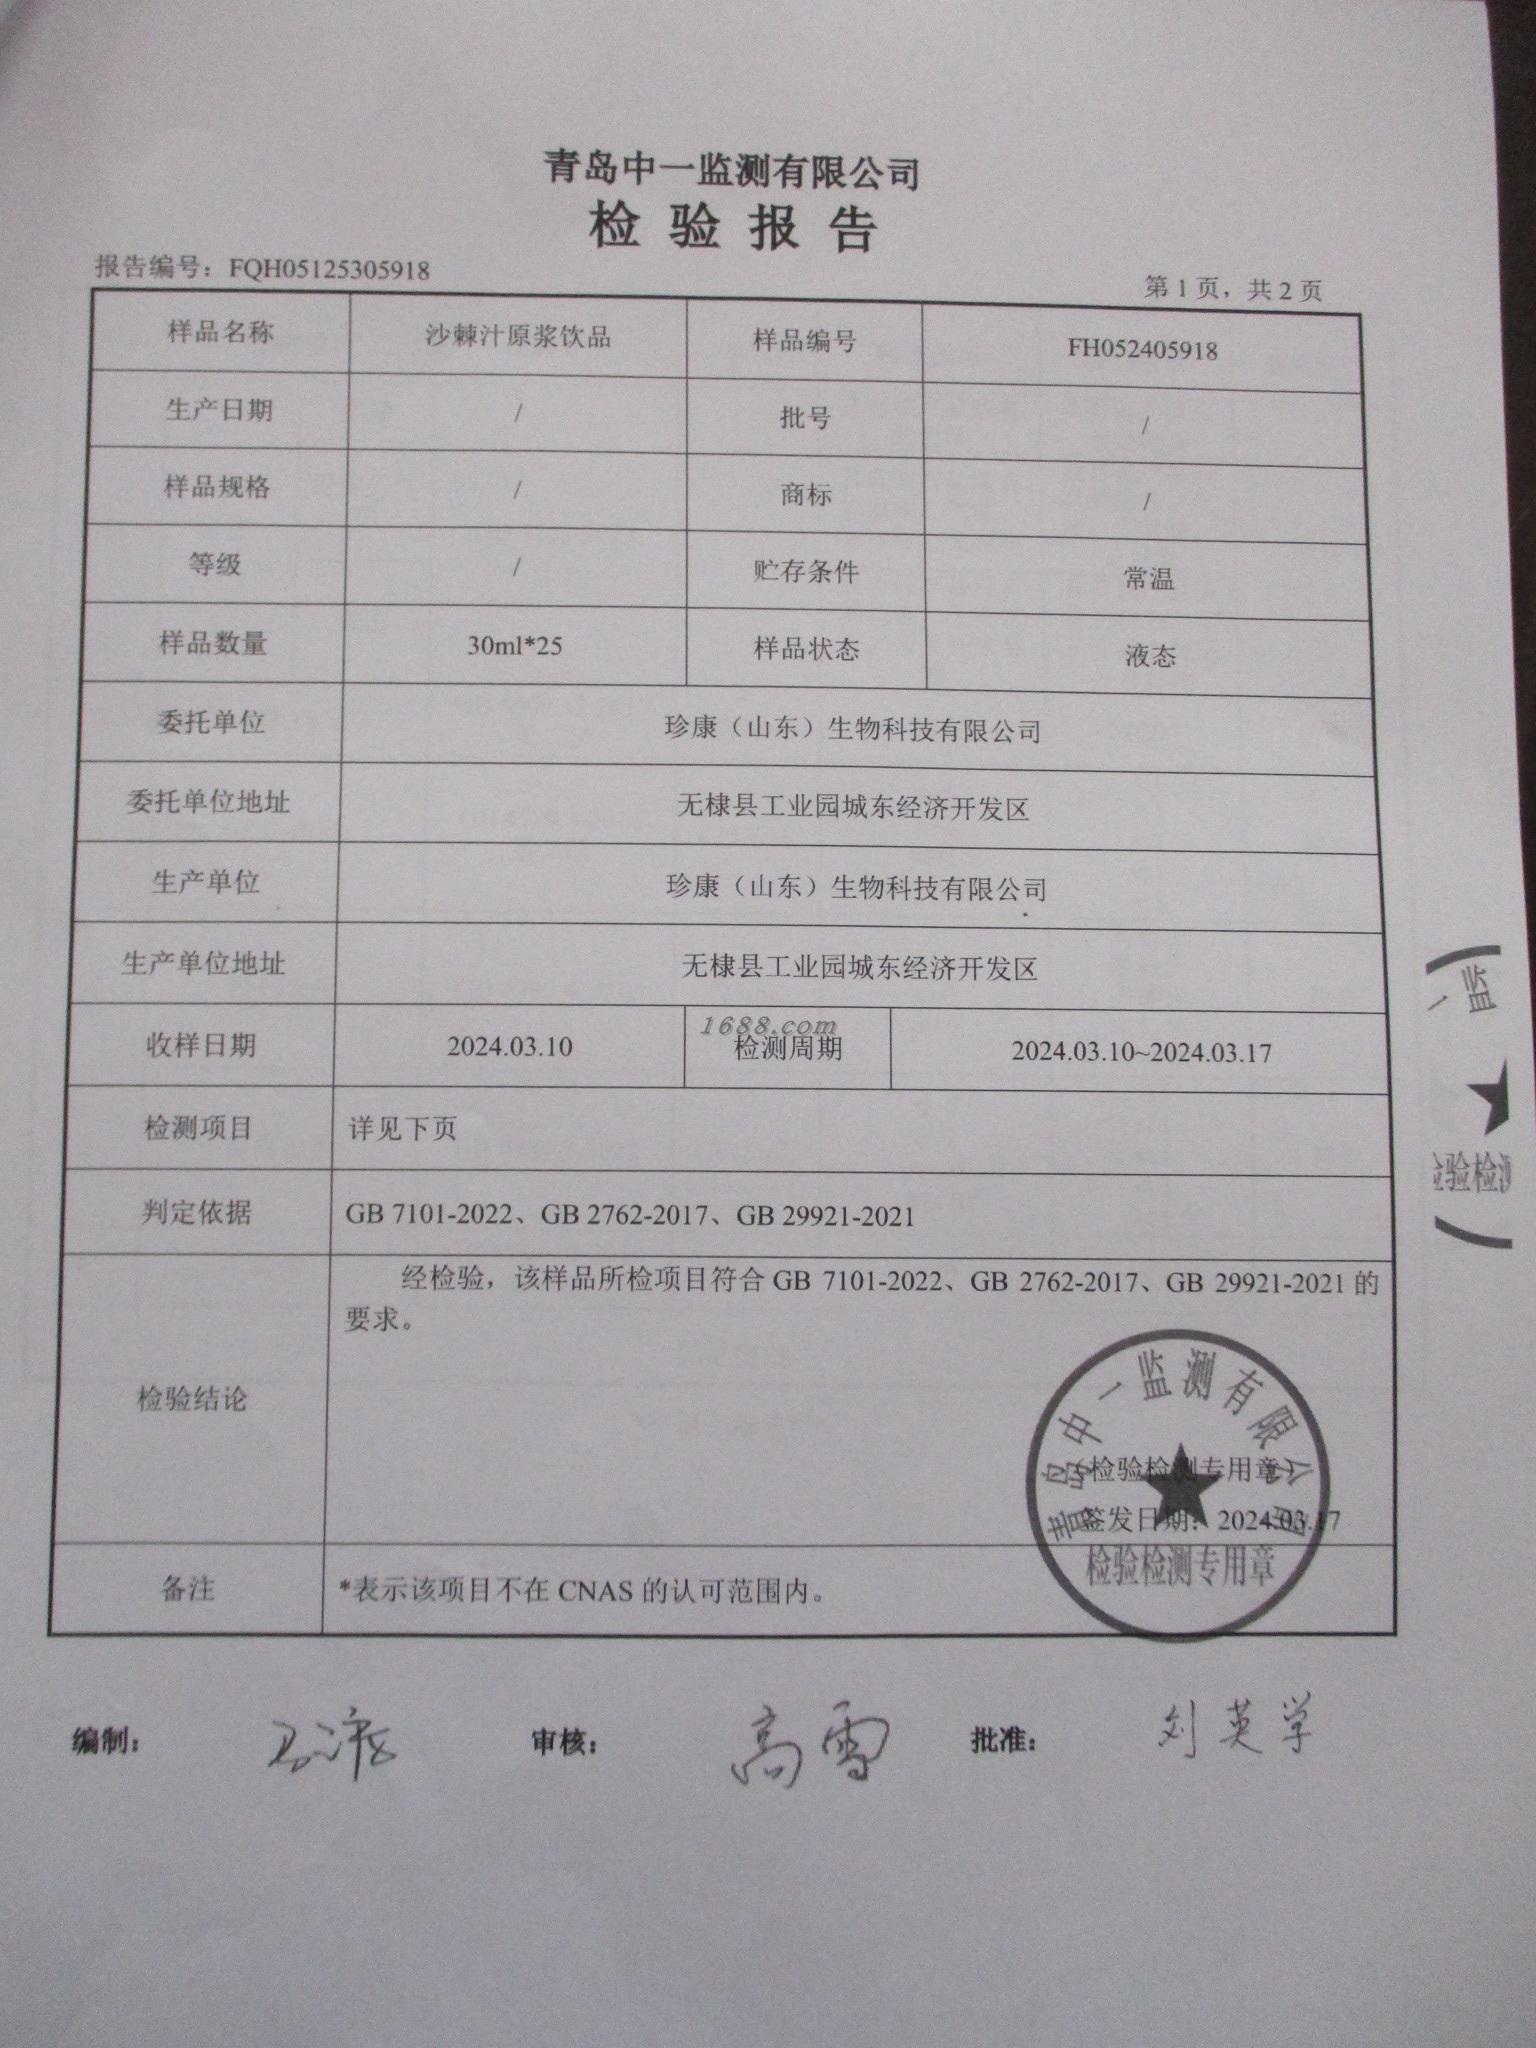 青岛中一监测有限公司
检验报告
报告编号：FQH05125305918
第1页，共2页
样品名称 沙棘汁原浆饮品 样品编号 FH052405918
生产日期 / 批号 /
样品规格 / 商标 /
等级 / 贮存条件 常温
样品数量 30ml*25 样品状态 液态
委托单位 珍康（山东）生物科技有限公司
委托单位地址 无棣县工业园城东经济开发区
生产单位 珍康（山东）生物科技有限公司
生产单位地址 无棣县工业园城东经济开发区
1688.com
收样日期 2024.03.10 检测周期 2024.03.10~2024.03.17
检测项目 详见下页
判定依据 GB 7101-2022、GB 2762-2017、GB 29921-2021
检验结论 经检验，该样品所检项目符合GB 7101-2022、GB 2762-2017、GB 29921-2021的
要求。
（检验检测专用章）
签发日期：2024.03.17
青岛中一监测有限公司
检验检测专用章
备注 *表示该项目不在CNAS的认可范围内。
编制： 审核：高雪 批准：刘英学
一监
验检